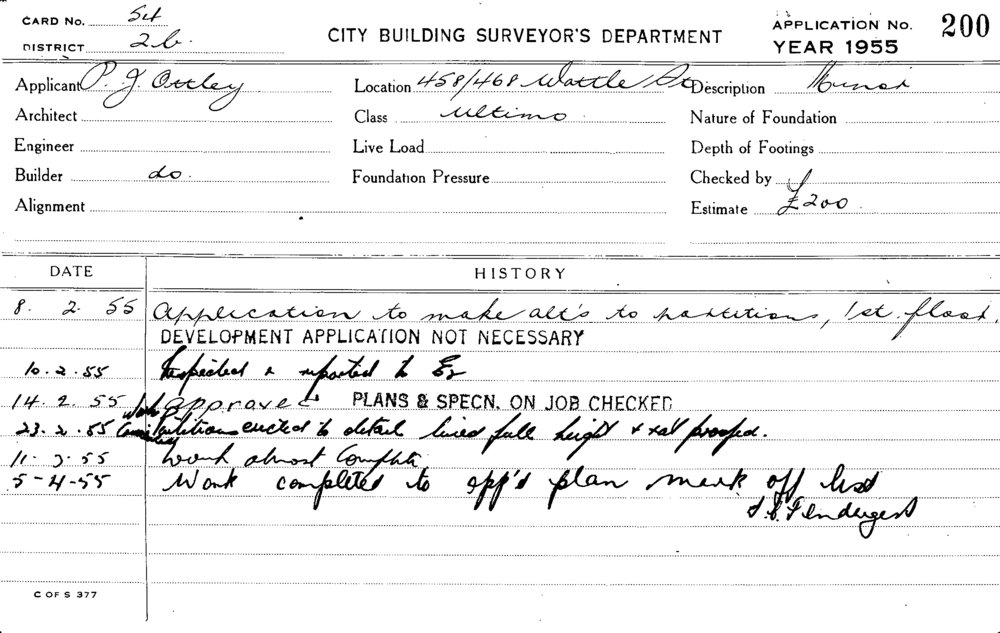 CARD No. 54
DISTRICT 2b.
CITY BUILDING SURVEYOR'S DEPARTMENT
APPLICATION No. 200
YEAR 1955
Applicant P. J. Ottley
Location 458/468 Wattle St
Description Minor
Architect
Class Ultimo
Nature of Foundation
Engineer
Live Load
Depth of Footings
Builder do.
Foundation Pressure
Checked by
Alignment
Estimate £200
DATE HISTORY
8. 2. 55 Application to make alt's to partitions, 1st. floor.
DEVELOPMENT APPLICATION NOT NECESSARY
10.2.55 Inspected & reported to
14. 2. 55 approved PLANS & SPECN. ON JOB CHECKED
23.2.55 partitions erected to detail lined full height & rat proofed.
11. 3. 55 Work almost complete
5-4-55 Work completed to app'd plan mark off list
C OF S 377